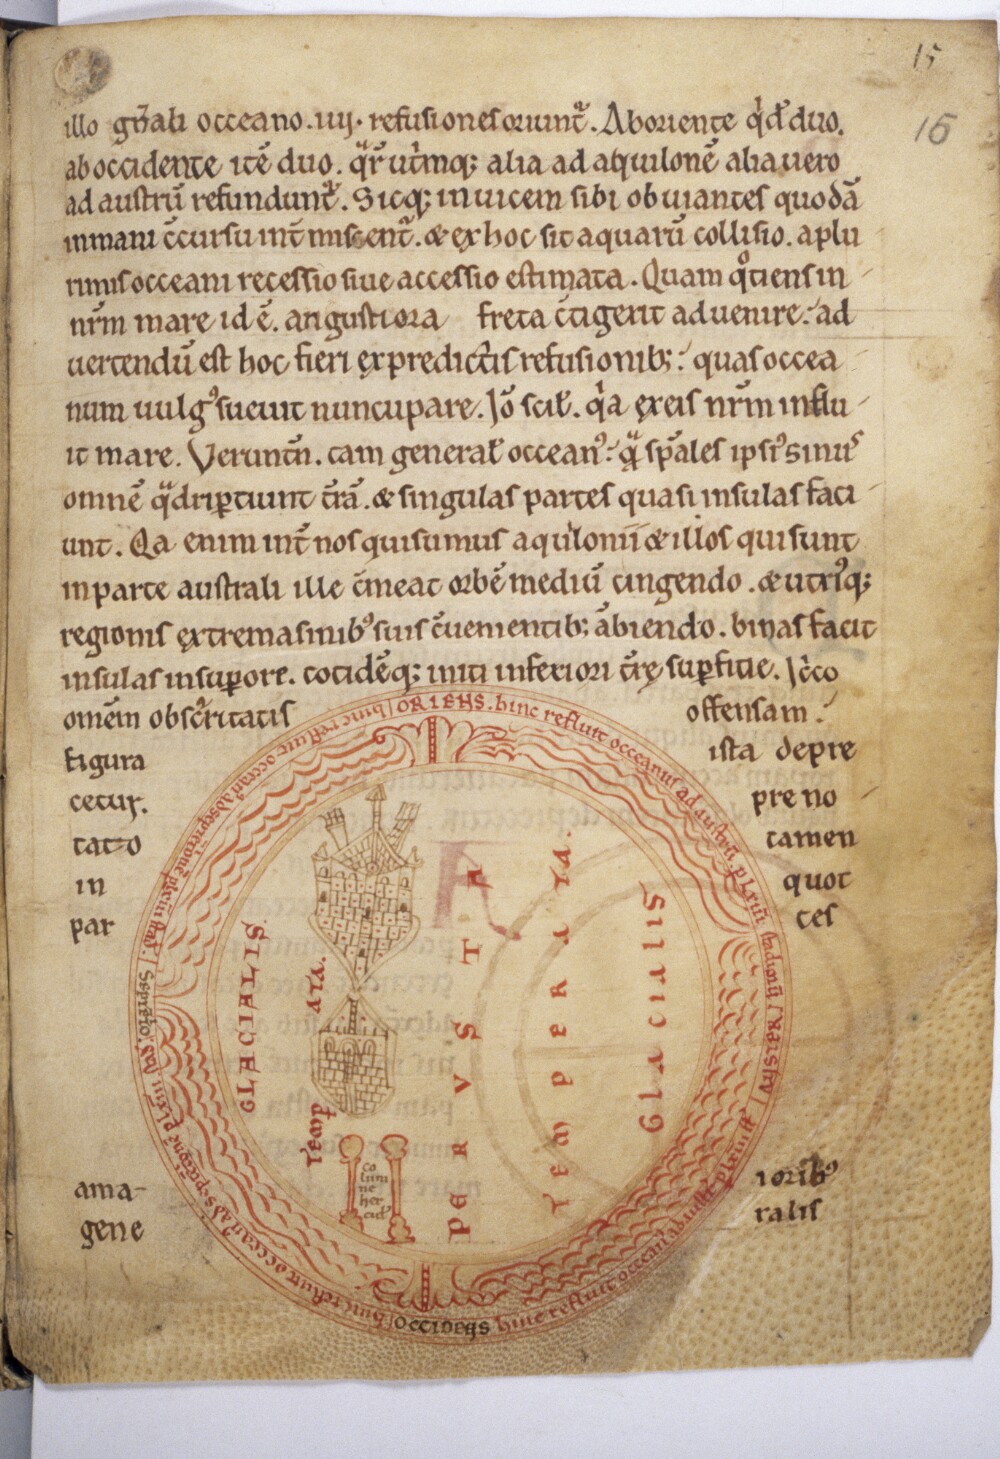 15
16
illo gn̄ali occeano. iiij. refusiones oriunt᷑. Ab oriente q̇d᷑ duo.
ab occidente itē duo. qͣr᷑ ut̓mq; alia ad aquilonē alia uero
ad austrū refundunt᷑. Sicq; inuicem sibi obuiantes quodā
inmani c̄cursu int̄ miscent᷑. & ex hoc sit aquarū collisio. a plu
rimis occeani recessio siue accessio estimata. Quam qͦtiens in
nr̄m mare id ē. angustiora freta c̄tigerit aduenire: ad
uertendū est hoc fieri ex predictis refusionib; quas occea
num uulgꝰ sueuit nuncupare. Iō scil̓. qͥa ex eis nr̄m influ
it mare. Veruntn̄. tam general̓ occeanꝰ qͣ sp̄ales ipsiꝰ sinus
omnē qͣdriꝑtiunt t̄rā. & singulas partes quasi insulas faci
unt. Qa enim int̄ nos qui sumus aquilonii & illos qui sunt
in parte australi ille c̄meat orbē mediū cingendo. & utriꝰq;
regionis extremas inibꝰ suis c̄uenientib; ābiendo. binas facit
insulas in suꝑore. totidēq; in ti inferiori t̄rę suꝑficie. Iccͦco
omēm obsc̓ritatis offensam.
figura ista depre
cetur. pre no
tatͦo tamen
in quot
par tes
ama- ioribꝰ
gene ralis
ORIENS. hinc refluit occeanus ad austrū. p Lxiiii stadiorū
AUSTER
hinc refluit occean ab austr̄ p lxiiii st̄
OCCIDENS
hinc refluit occeanꝰ a septt̄one p Lxiiii
Septt̄rio
hinc refluit occeanꝰ ab septt̄rione p lxiiii stad̄.
GLACIALIS
Temp ata.
PERVSTA
TEMPERATA.
GLACIALIS
co
lum
ne
her
cul̓